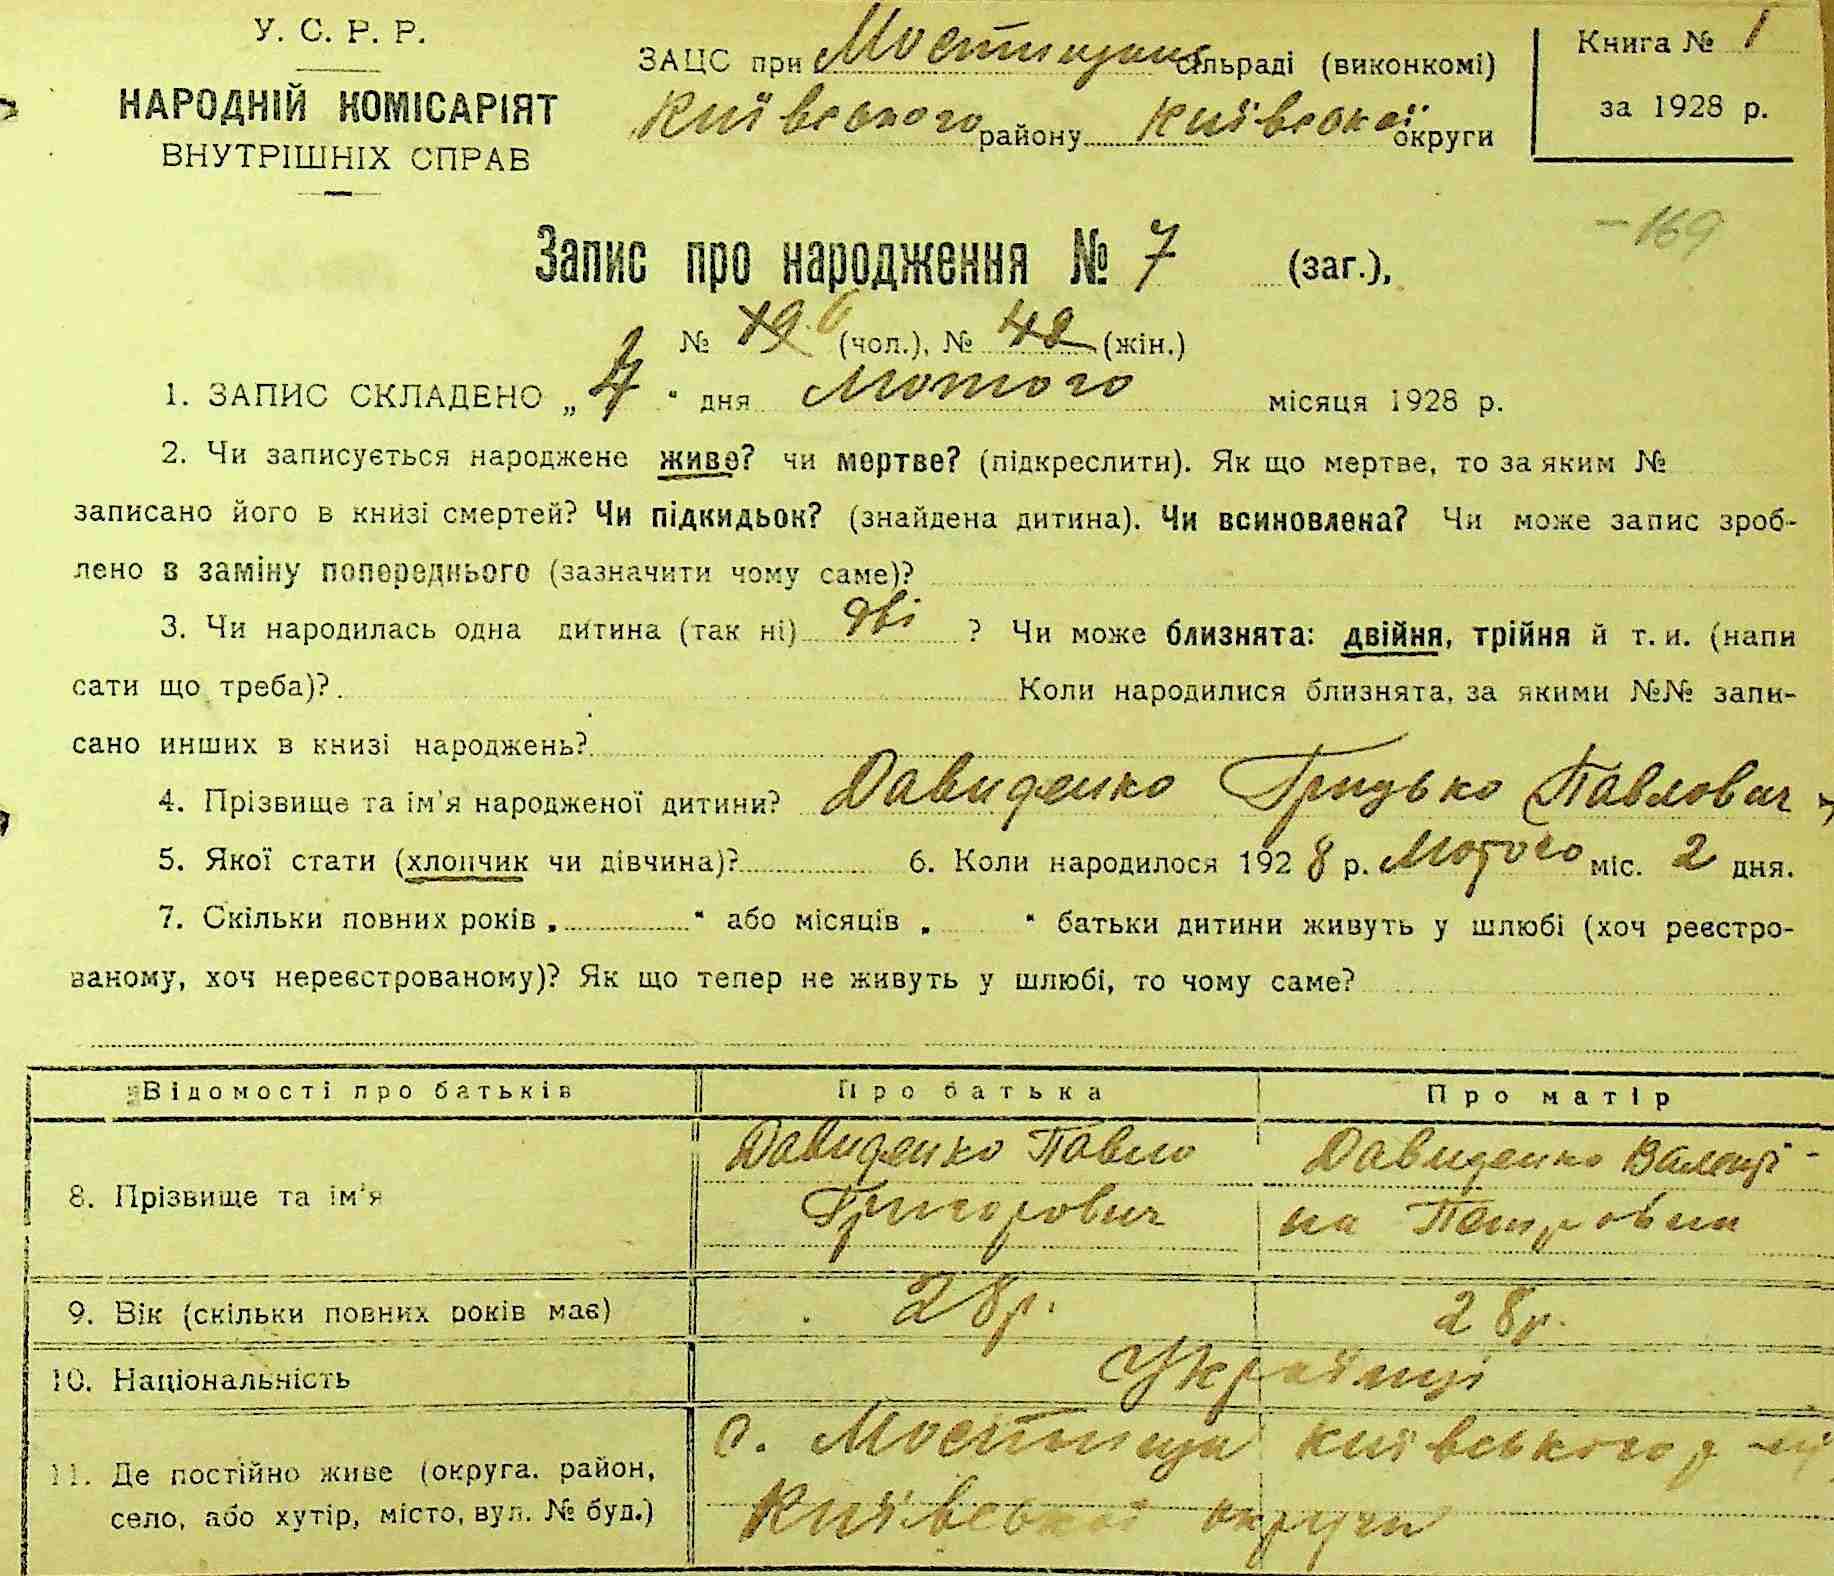 У. С. Р. Р.
НАРОДНІЙ КОМІСАРІЯТ
ВНУТРІШНІХ СПРАВ
ЗАЦС при Мостищан сільраді (виконкомі)
Київського району Київської округи
Книга № 1
за 1928 р.
– 169
Запис про народження № 7 (заг.),
№ (чол.), № (жін.)
1. ЗАПИС СКЛАДЕНО „ 4 “ дня Лютого місяця 1928 р.
2. Чи записується народжене живе? чи мертве? (підкреслити). Як що мертве, то за яким №
записано його в книзі смертей? Чи підкидьок? (знайдена дитина). Чи всиновлена? Чи може запис зроб-
лено в заміну попереднього (зазначити чому саме)?
3. Чи народилась одна дитина (так ні) дві ? Чи може близнята: двійня, трійня й т. и. (напи
сати що треба)? Коли народилися близнята, за якими №№ запи-
сано инших в книзі народжень?
4. Прізвище та ім'я народженої дитини? Давиденко Грицько Павлович
5. Якої стати (хлопчик чи дівчина)? 6. Коли народилося 1928 р. Лютого міс. 2 дня.
7. Скільки повних років „ “ або місяців „ “ батьки дитини живуть у шлюбі (хоч реєстро-
ваному, хоч нереєстрованому)? Як що тепер не живуть у шлюбі, то чому саме?
Відомості про батьків Про батька Про матір
8. Прізвище та ім'я
Давиденко Павло
Григорович
Давиденко Валенті-
на Петровна
9. Вік (скільки повних років має) 28 р. 28 р.
10. Національність Українці
11. Де постійно живе (округа, район,
село, або хутір, місто, вул. № буд.)
с. Мостища Київського р-ну
Київської округи